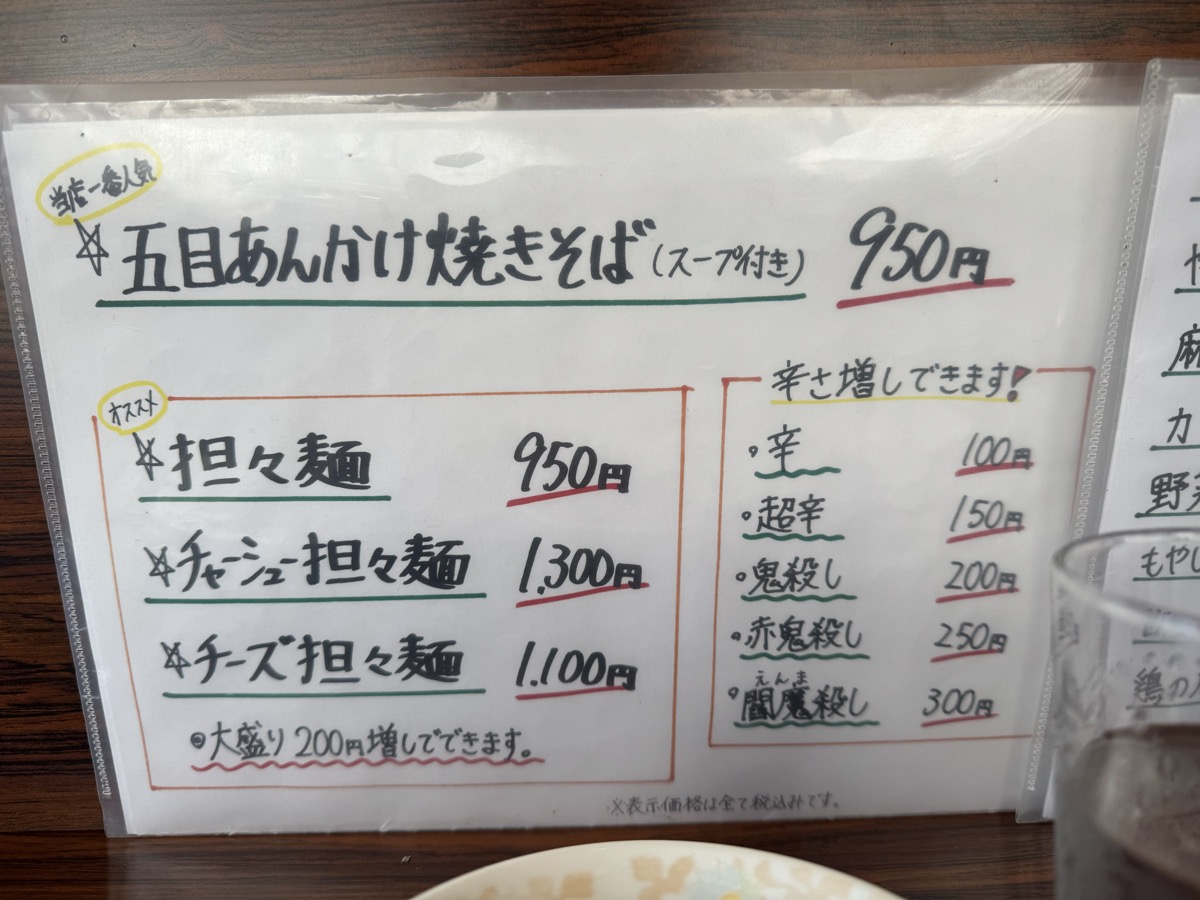 当店一番人気
☆五目あんかけ焼きそば(スープ付き) 950円
オススメ
☆担々麺 950円
☆チャーシュー担々麺 1,300円
☆チーズ担々麺 1,100円
◎大盛り200円増しでできます。
辛さ増しできます!
・辛 100円
・超辛 150円
・鬼殺し 200円
・赤鬼殺し 250円
えんま
・閻魔殺し 300円
※表示価格は全て税込みです。
麻
カ
野菜
もやし
鶏の